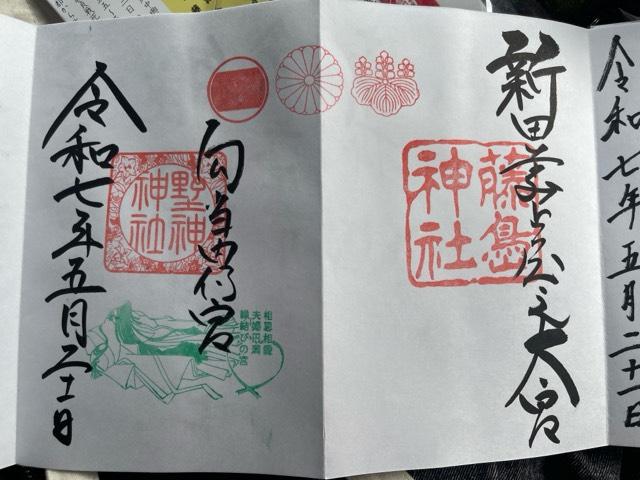 令和七年五月二十一日
新田義貞公之大宮
藤島
神社
勾当内侍宮
野神
神社
相思相愛
夫婦円満
縁結びの宮
令和七年五月二十一日